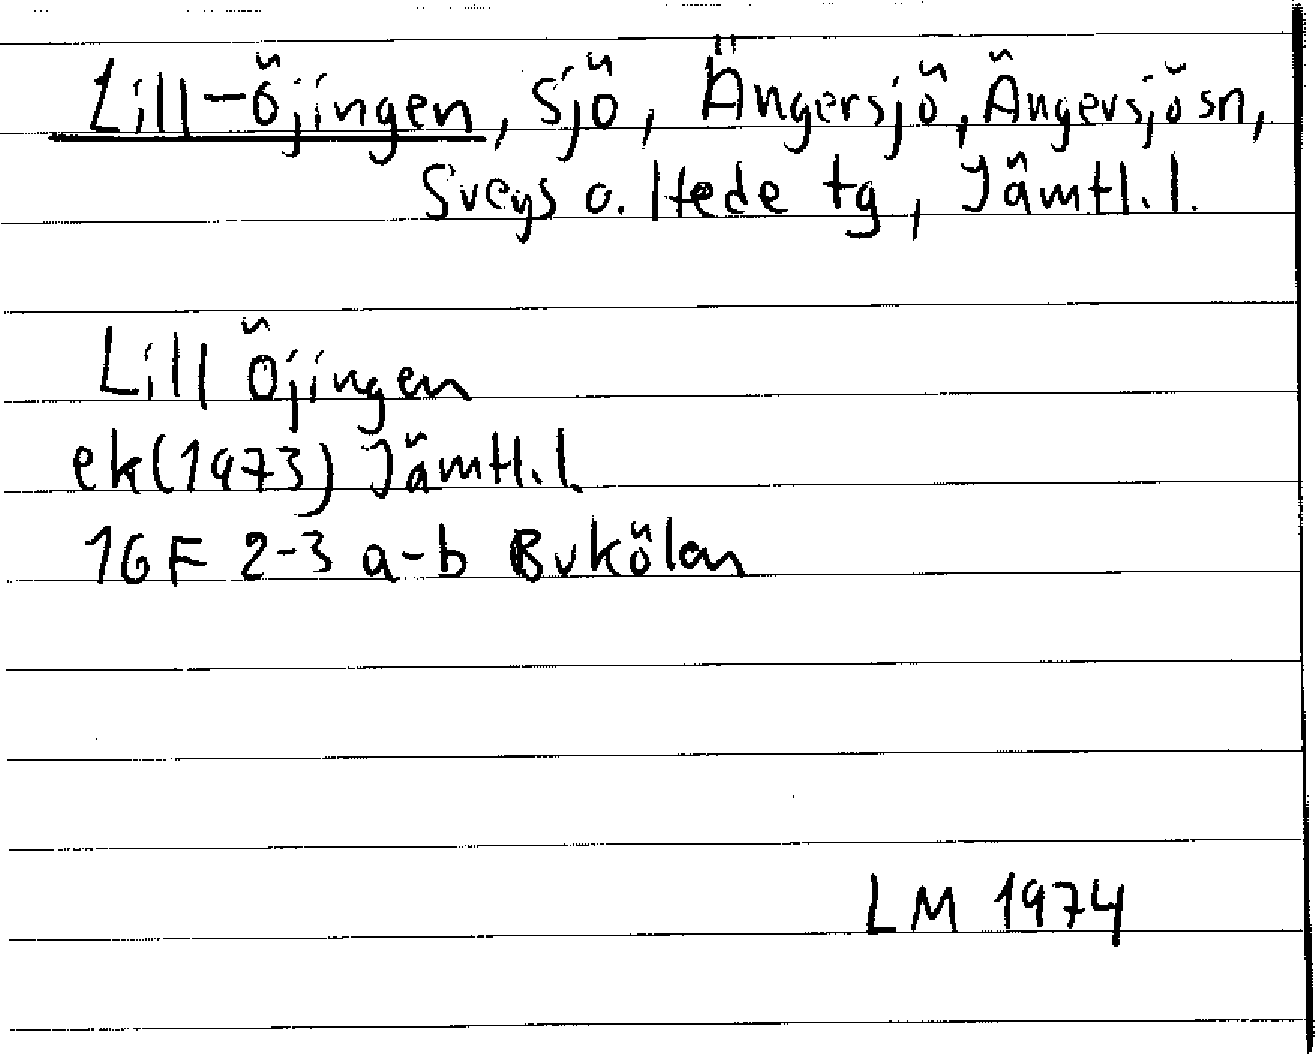 Lill-Öjingen, sjö, Ängersjö, Ängersjösn,
Svegs o. Hede tg, Jämtl.l.
Lill Öjingen
ek(1973) Jämtl.l.
16F 2-3 a-b Burkölen
LM 1974